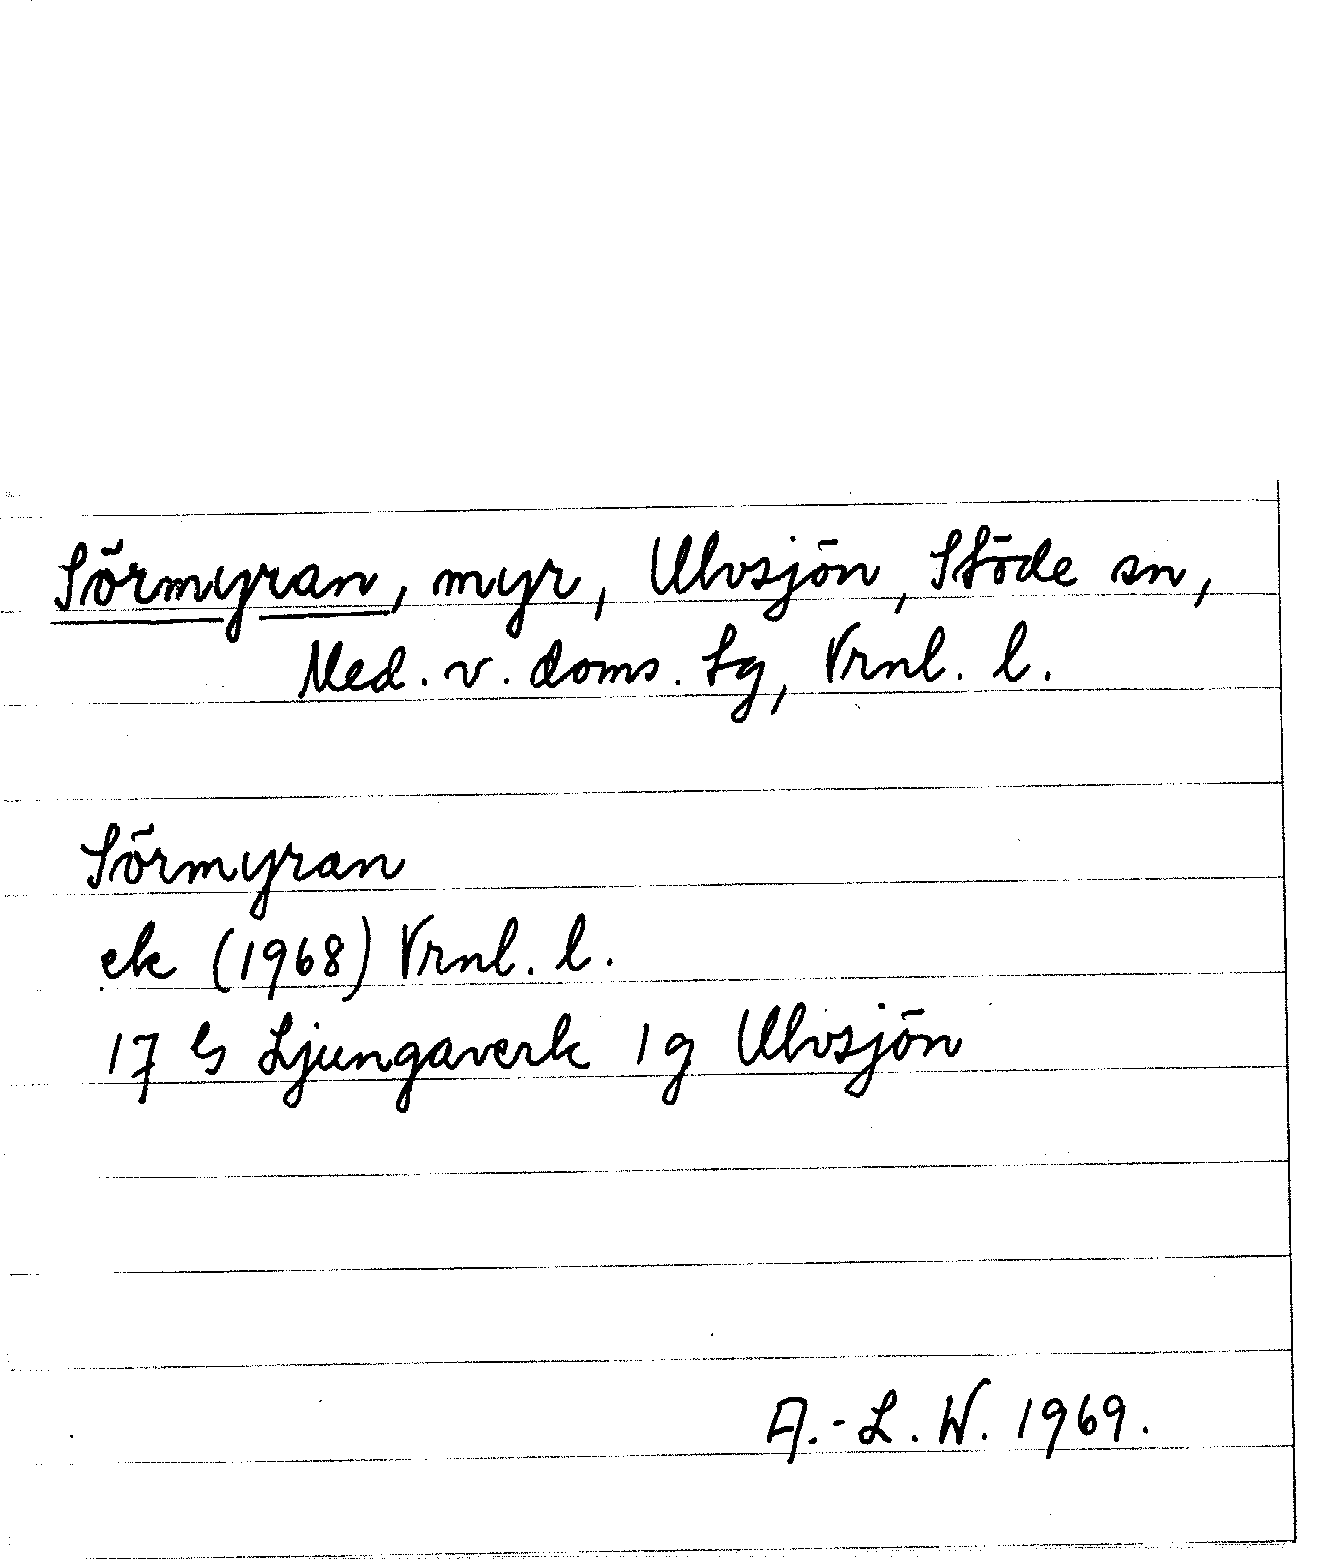 Sörmyran, myr, Ulvsjön, Stöde sn,
Med. v. doms. tg, Vrnl. l.
Sörmyran
ek (1968) Vrnl. l.
17 G Ljungaverk 1 g Ulvsjön
A.-L. W. 1969.